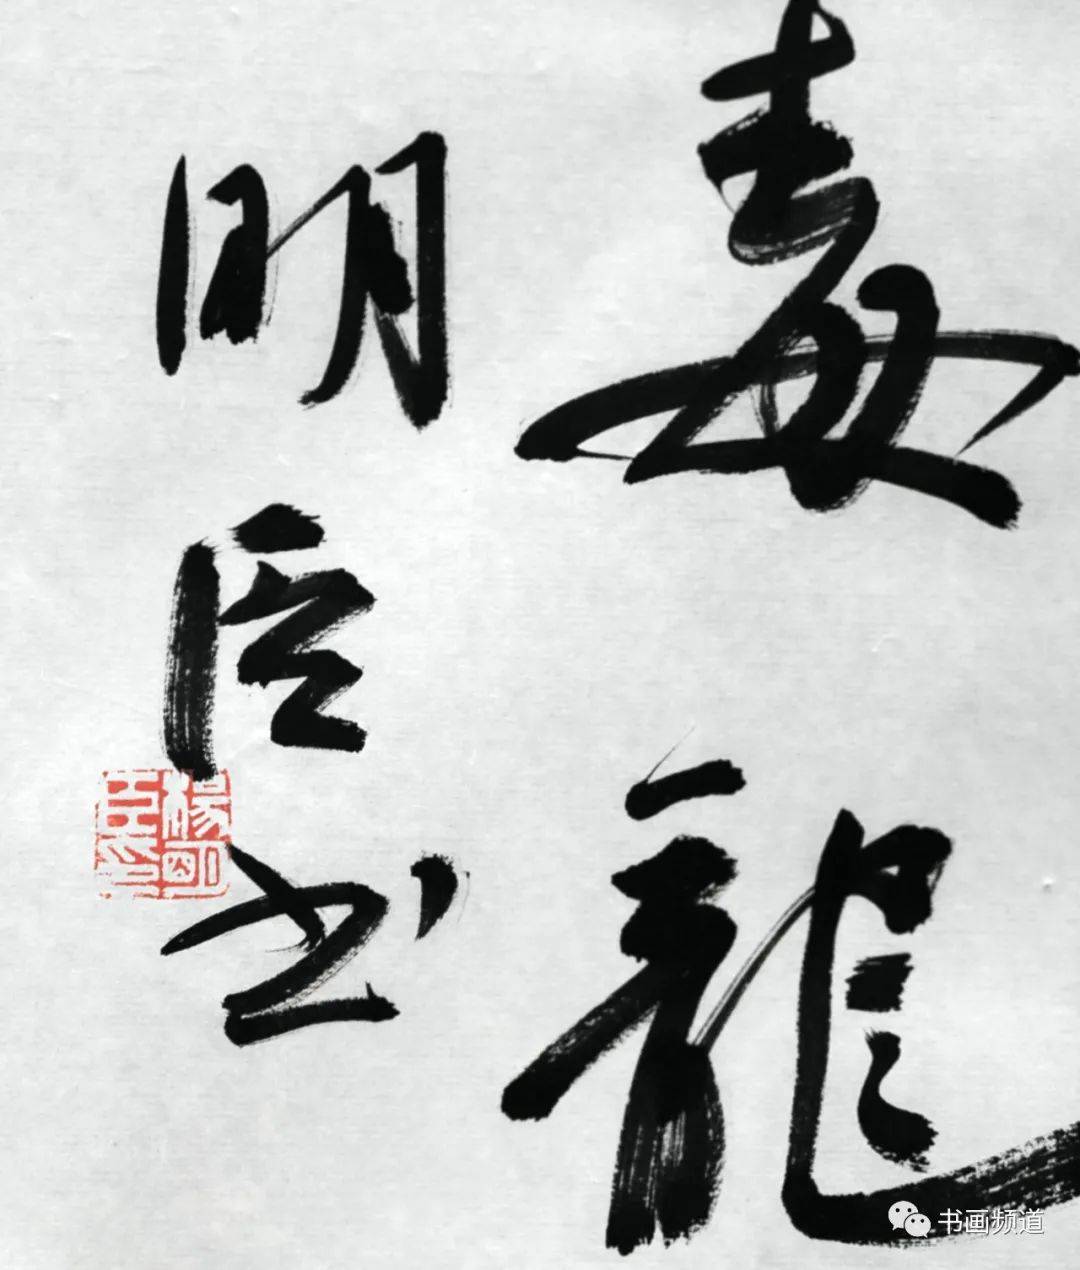 毒龍
明臣书
楊明臣印
书画频道